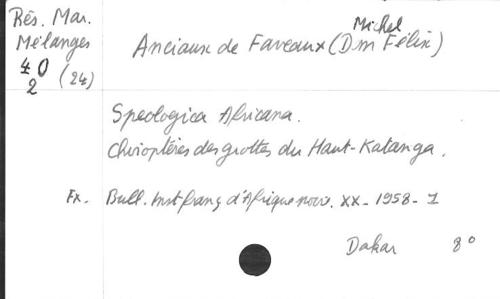 Rés. Mar.
Mélanges
40
2 (24)
Michel
Anciaux de Faveaux (Dm Félix)
Speologica Africana.
Chiroptères des grottes du Haut-Katanga.
Ex. Bull. Inst. franç d'Afrique noire. XX - 1958 - 1
Dakar 8°